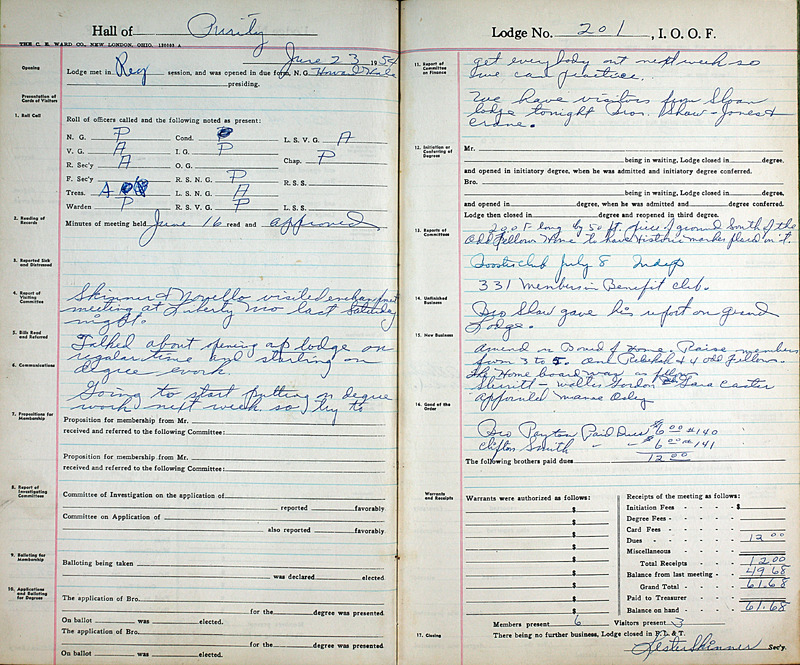 Hall of Purity
THE C. E. WARD CO., NEW LONDON, OHIO. 120003 A
June 23 1954
Opening
Lodge met in Reg session, and was opened in due form, N. G. Howard
presiding.
Presentation of Cards of Visitors
1. Roll Call
Roll of officers called and the following noted as present:
N. G. P Cond. P L. S. V. G. A
V. G. A I. G. P Chap. P
R. Sec'y A O. G.
F. Sec'y R. S. N. G. P R. S. S.
Treas. A L. S. N. G. A
Warden P R. S. V. G. P L. S. S.
2. Reading of Records
Minutes of meeting held June 16 read and approved
3. Reported Sick and Distressed
4. Report of Visiting Committee
Skinner & Novello visited encampment
meeting at Liberty Mo last Saturday
night.
5. Bills Read and Referred
Talked about opening up lodge on
regular time and starting on
6. Communications
degree work.
Going to start putting on degree
work next week. so try to
7. Propositions for Membership
Proposition for membership from Mr.
received and referred to the following Committee:
Proposition for membership from Mr.
received and referred to the following Committee:
8. Report of Investigating Committees
Committee of Investigation on the application of
reported favorably
Committee on Application of
also reported favorably
9. Balloting for Membership
Balloting being taken
was declared elected
10. Applications and Balloting for Degrees
The application of Bro.
for the degree was presented
On ballot was elected.
The application of Bro.
for the degree was presented
On ballot was elected.
Lodge No. 201, I. O. O. F.
11. Report of Committee on Finance
get everybody out next week so
we can practice.
We have visitors from Sloan
lodge tonight Bros. Shaw - Jones &
Crane.
12. Initiation or Conferring of Degrees
Mr.
being in waiting, Lodge closed in degree.
and opened in initiatory degree, when he was admitted and initiatory degree conferred.
Bro.
being in waiting, Lodge closed in degree,
and opened in degree, when he was admitted and degree conferred.
Lodge then closed in degree and reopened in third degree.
13. Reports of Committees
200 ft long by 50 ft. piece of ground South of the
Odd Fellows Home to have Historic marker placed on it.
Booster club July 8 Indep
331 members in Benefit club.
14. Unfinished Business
Bro Shaw gave his report on grand
Lodge.
15. New Business
Amend on Board of Home. Raise members
from 3 to 5. and Rebekah & 4 odd fellows.
The Home board was as follows
Walter Gordon Carter
16. Good of the Order
approved
Bro Peyton Paid Dues $6 00 #140
Clifton Smith " " $6 00 #141
12 00
The following brothers paid dues
Warrants and Receipts
Warrants were authorized as follows:
$
$
$
$
$
$
$
$
$
Receipts of the meeting as follows:
Initiation Fees - $
Degree Fees -
Card Fees -
Dues - 12 00
Miscellaneous
Total Receipts 12.00
Balance from last meeting - 49.68
Grand Total 61.68
Paid to Treasurer
Balance on hand 61.68
Members present 6 Visitors present 3
17. Closing
There being no further business, Lodge closed in F. L. & T.
Lester Skinner Sec'y.